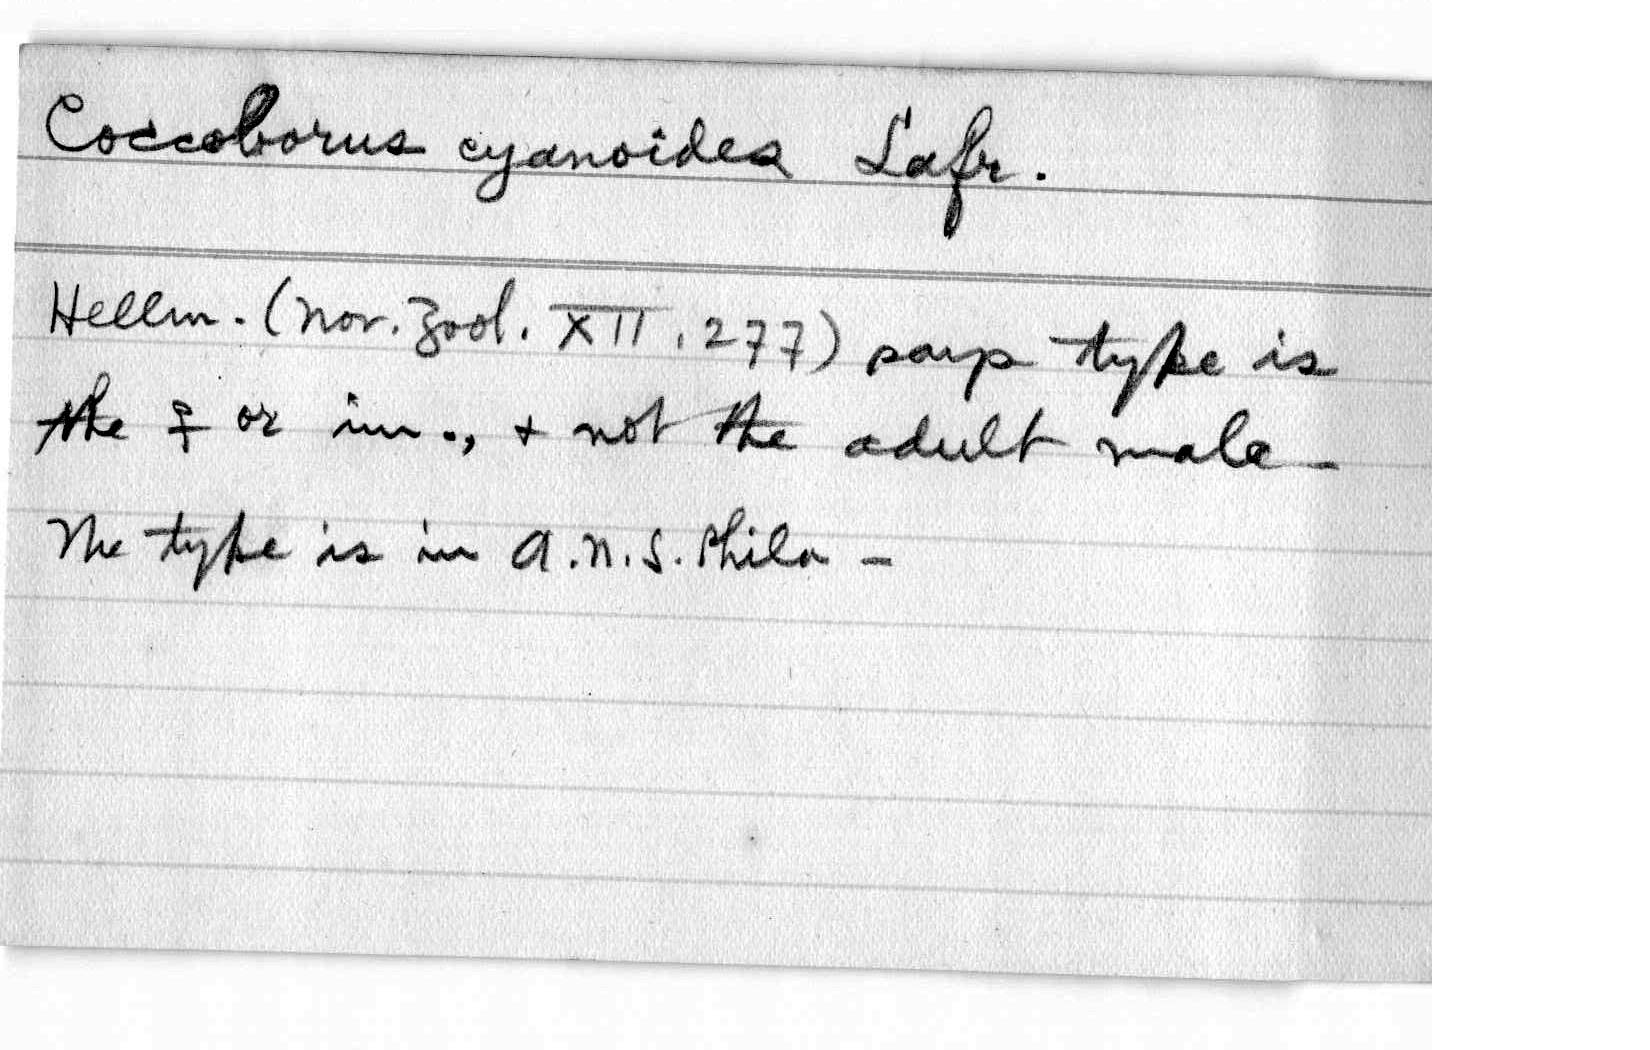 Coccoborus cyanoides Lafr.
Hellm. (Nov. Zool. XII, 277) says type is
the ♀ or im., + not the adult male -
The type is in A.N.S. Phila -